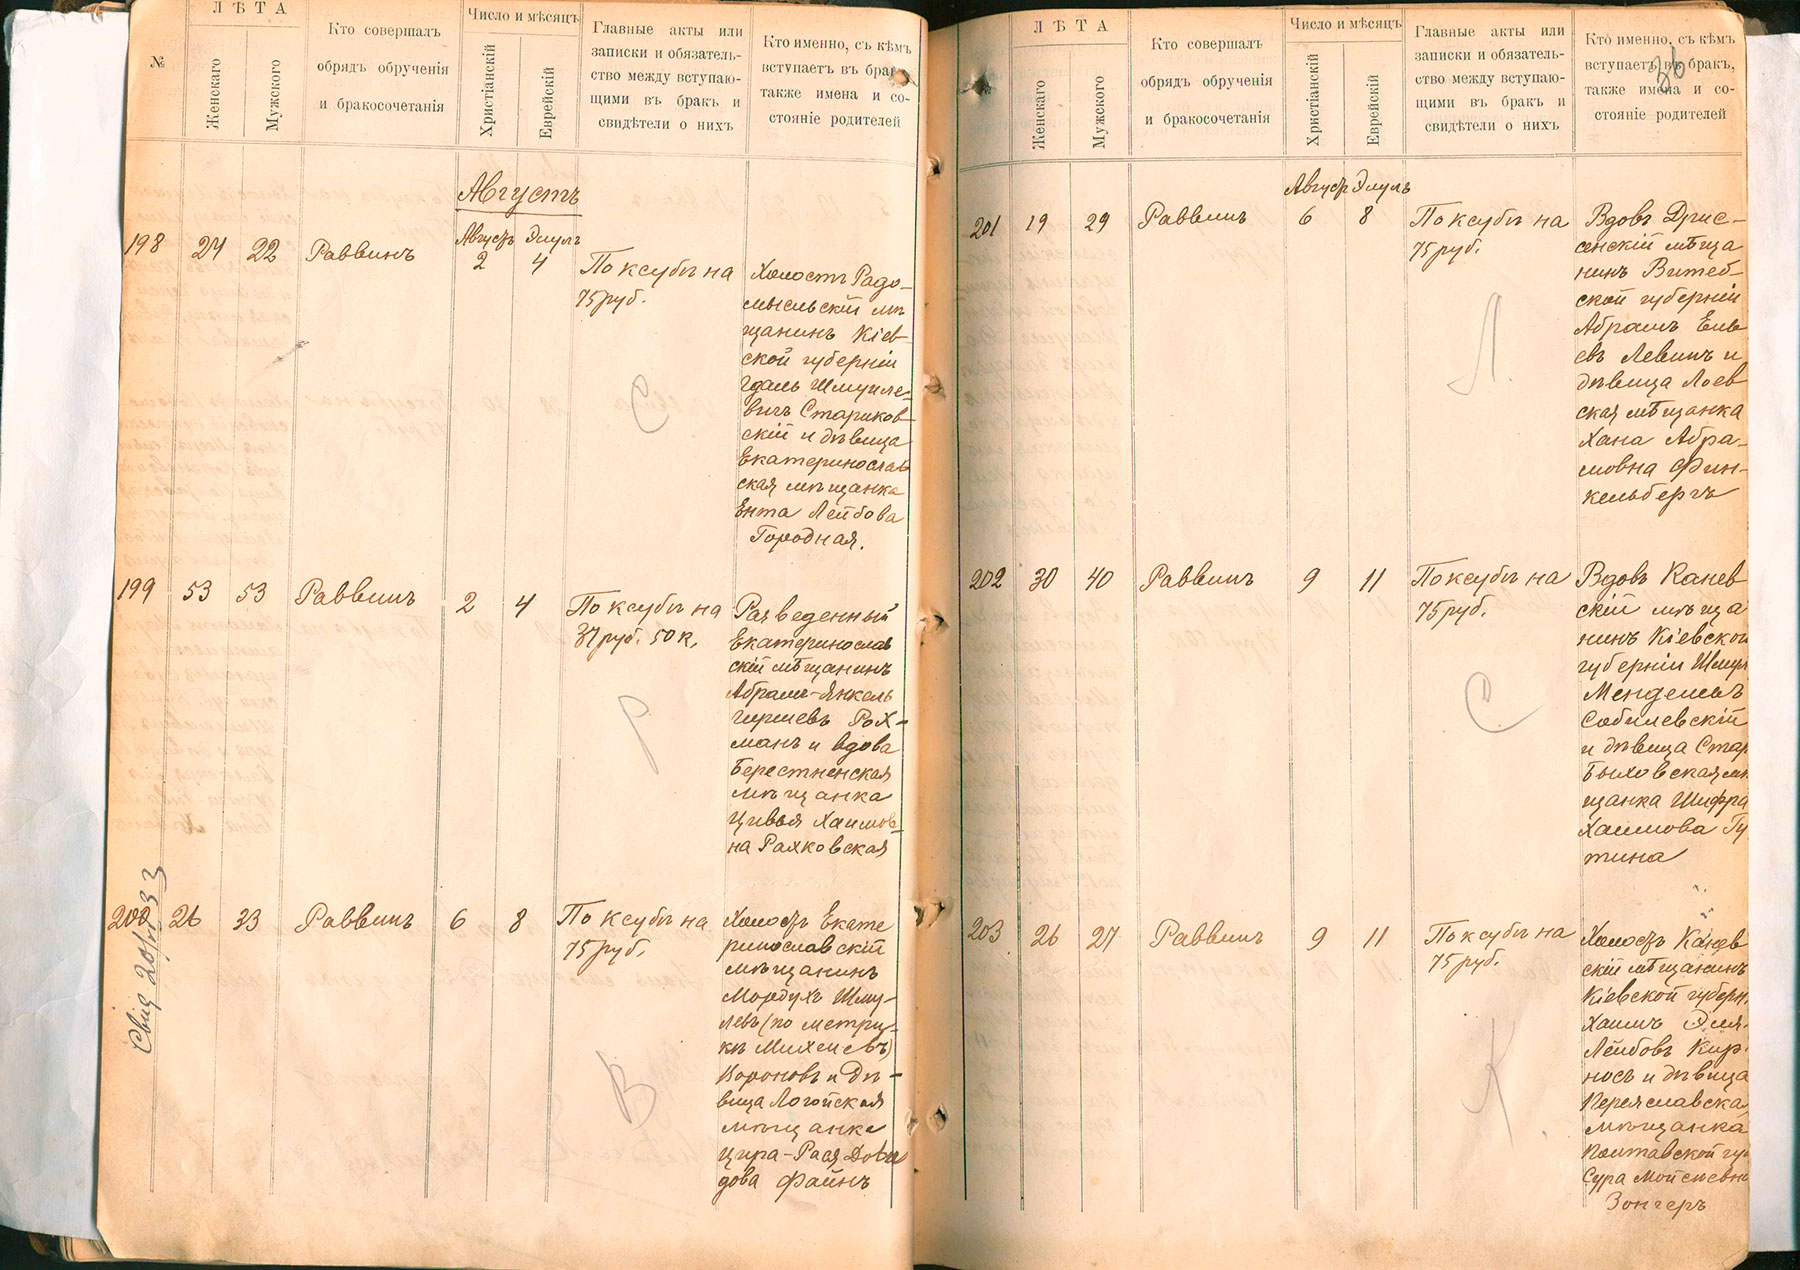 ЛѢТА
№
Женскаго
Мужского
Кто совершалъ
обрядъ обрученія
и бракосочетанія
Число и мѣсяцъ
Христіанскій
Еврейскій
Главные акты или
записки и обязатель-
ство между вступаю-
щими въ бракъ и
свидѣтели о нихъ
Кто именно, съ кѣмъ
вступаетъ въ бракъ,
также имена и со-
стояніе родителей
Августъ
Августъ Элулъ
198 24 22 Раввинъ 2 4
По ксубѣ на
75 руб.
С
Холостъ Радо-
мысльскій мѣ
щанинъ Кіев-
ской губерніи
Гдаль Шмуиле-
вичъ Стариков-
скій и дѣвица
Екатеринослав
ская мѣщанка
Ента Лейбова
Городная.
199 53 53 Раввинъ 2 4
По ксубѣ на
37 руб. 50 к.
Р
Разведенный
Екатеринослав
скій мѣщанинъ
Абрамъ-Янкель
Гиршевъ Рох-
манъ и вдова
мѣщанка
Цивья Хаимов-
на
200 26 33 Раввинъ 6 8
По ксубѣ на
75 руб.
В
Холостъ Екате
ринославскій
мѣщанинъ
Мордухъ Шму-
левъ (по метри-
кѣ
Вороновъ и дѣ-
вица Логойская
мѣщанка
Цира-Рася Дови
дова Файнъ
ЛѢТА
Женскаго
Мужского
Кто совершалъ
обрядъ обрученія
и бракосочетанія
Число и мѣсяцъ
Христіанскій
Еврейскій
Главные акты или
записки и обязатель-
ство между вступаю-
щими въ бракъ и
свидѣтели о нихъ
Кто именно, съ кѣмъ
вступаетъ въ бракъ,
также имена и со-
стояніе родителей
Августъ Элулъ
201 19 29 Раввинъ 6 8
По ксубѣ на
75 руб.
Л.
Вдовъ Дрис-
сенскій мѣща
нинъ Витеб-
ской губерніи
Абрамъ Елье
евъ Левинъ и
дѣвица Лоев
ская мѣщанка
Хана Абра-
мовна Фин-
кельбергъ
202 30 40 Раввинъ 9 11
По ксубѣ на
75 руб.
С
Вдовъ Канев
скій мѣща
нинъ Кіевской
губерніи
Менделевъ
Собилевскій
и дѣвица Стар
Быховская мѣ
щанка Шифра
Хаимова Гу
тина
203 26 27 Раввинъ 9 11
По ксубѣ на
75 руб.
К
Холостъ Канев
скій мѣщанинъ
Кіевской губерн.
Хаимъ Эля-
Лейбовъ Кир-
носъ и дѣвица
Переяславска
мѣщанка
Полтавской гу
Сура Мойсеевна
Зонгеръ